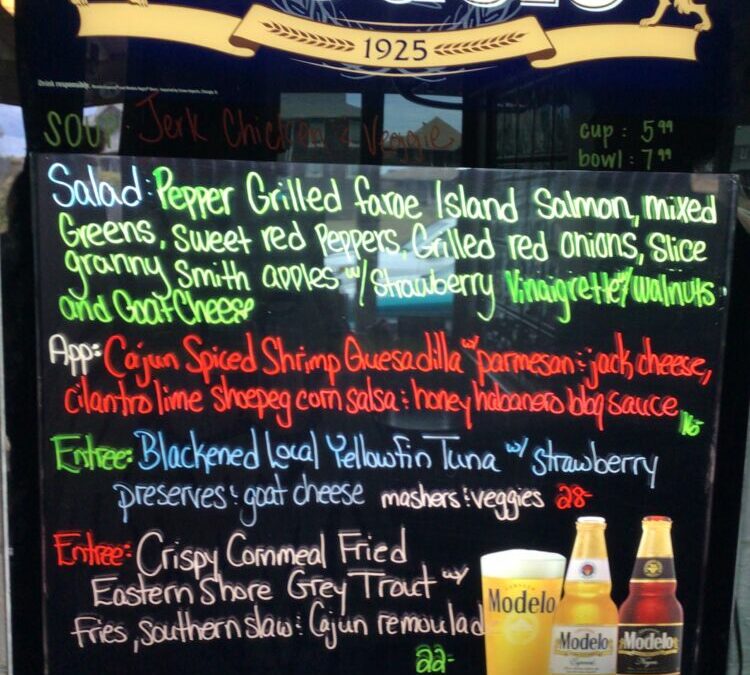 1925
Drink responsibly.
SOUP: Jerk Chicken & Veggie
cup: 5.99
bowl: 7.99
Salad: Pepper Grilled faroe Island Salmon, mixed
Greens, Sweet red Peppers, Grilled red onions, Slice
granny Smith apples w/ Strawberry Vinaigrette w/ walnuts
and Goat Cheese
App: Cajun Spiced Shrimp Quesadilla w/ parmesan & jack cheese,
cilantro lime shoepeg corn salsa & honey habanero bbq sauce
16
Entree: Blackened Local Yellowfin Tuna w/ Strawberry
preserves & goat cheese mashers & veggies 28-
Entree: Crispy Cornmeal Fried
Eastern Shore Grey Trout w/
Fries, southern slaw & Cajun remoulad
22-
Modelo
Modelo
Especial
Modelo
Negra